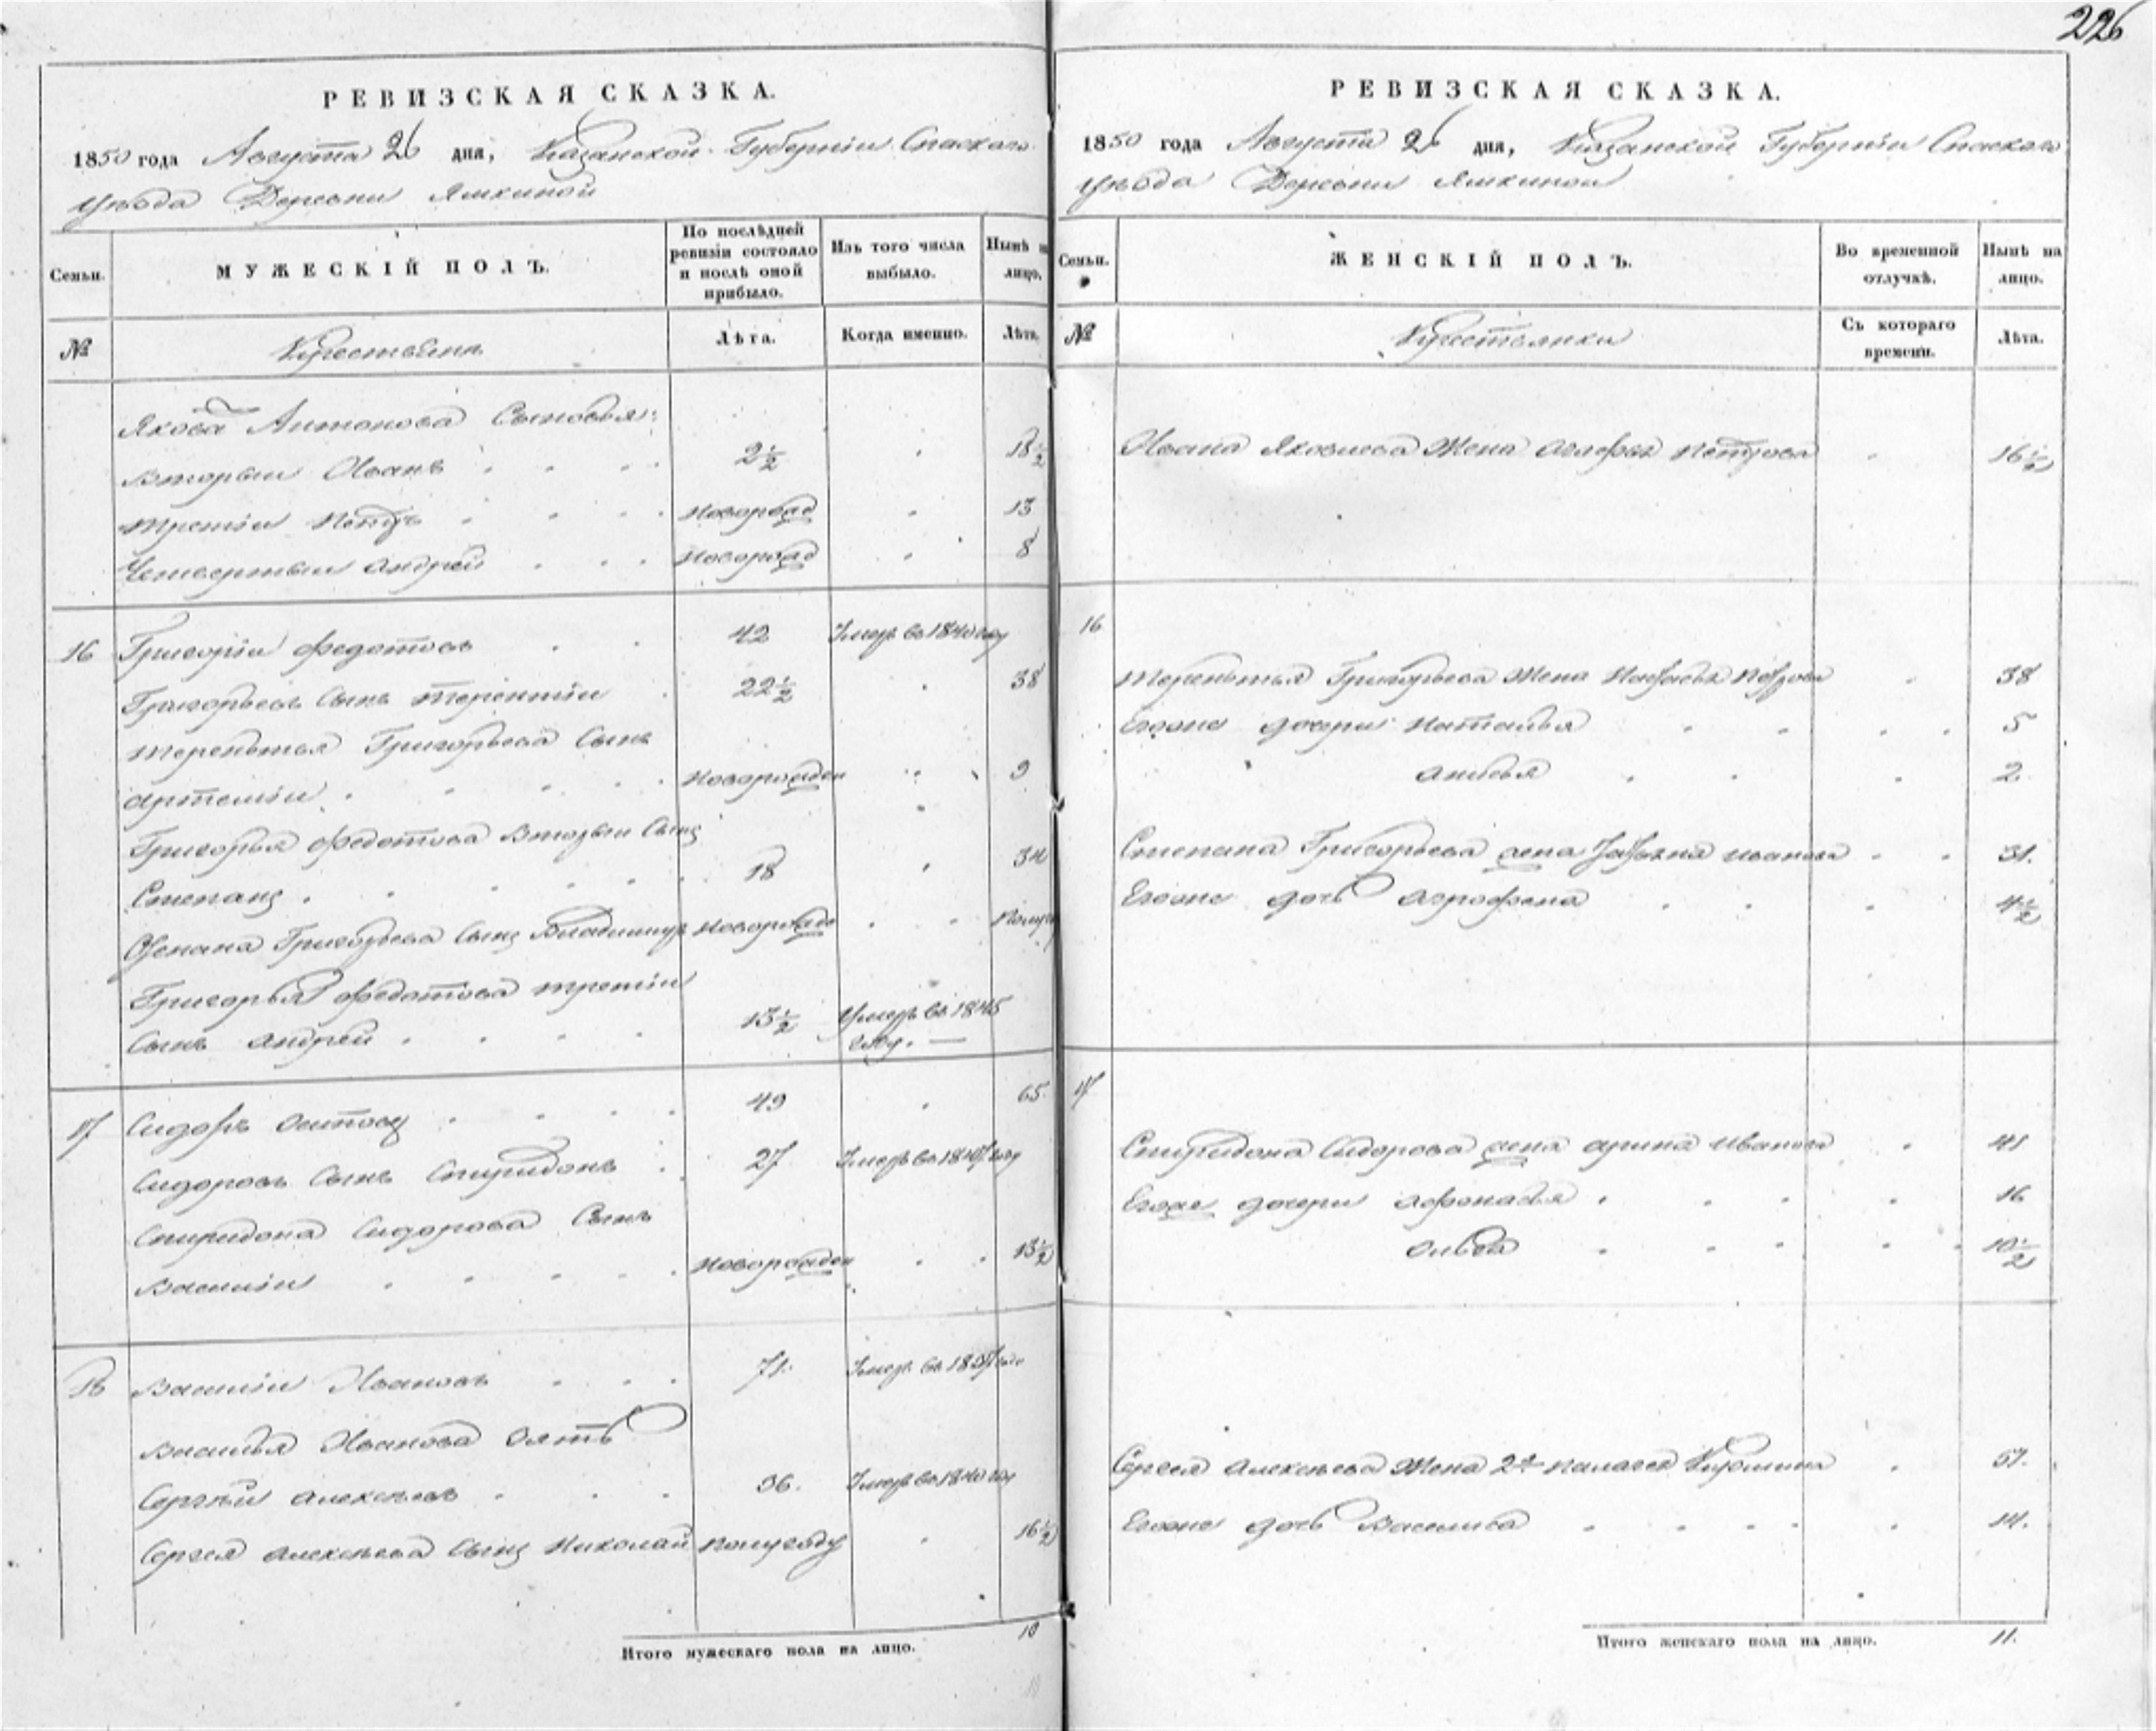 226
РЕВИЗСКАЯ СКАЗКА.
1850 года Августа 26 дня, Казанской Губерніи Спаскаго
уѣзда Деревни Ямкиной
Семьи.
МУЖЕСКІЙ ПОЛЪ.
По послѣдней ревизіи состояло и послѣ оной прибыло.
Изъ того числа выбыло.
Нынѣ на лицо.
№
Крестьяне
Лѣта.
Когда именно.
Лѣта.
Якова Антонова Сыновья:
Вторый Иванъ 2½ 18½
Третіи Петръ Новорожд 13
Четвертыи Андрей Новорожд 8
16 Григоріи Федотовъ 42 Умеръ въ 1840 году
Григорьевъ Сынъ Терентіи 22½ 38
Терентья Григорьева Сынъ
Артеміи Новорожден 9
Григорья Федотова Вторыи Сынъ
Степанъ 18 34
Степана Григорьева Сынъ Владимиръ Новорожден Полуго
Григорья Федотова третіи
Сынъ Андрей 13½ Умеръ въ 1845
году.
17 Сидоръ Осиповъ 49 65
Сидоровъ Сынъ Спиридонъ 27 Умеръ въ 1847 году
Спиридона Сидорова Сынъ
Василіи Новорожден 13½
18 Василіи Ивановъ 71 Умеръ въ 1837 году
Василья Иванова Зять
Сергѣй Алексѣевъ 36. Умеръ въ 1840 году
Сергея Алексѣева Сынъ Николай полугоду 16½
Итого мужескаго пола на лицо. 10
РЕВИЗСКАЯ СКАЗКА.
1850 года Августа 26 дня, Казанской Губерніи Спаскаго
уѣзда Деревни Ямкиной
Семьи.
ЖЕНСКІЙ ПОЛЪ.
Во временной отлучкѣ.
Нынѣ на лицо.
№
Крестьянки
Съ котораго времени.
Лѣта.
Ивана Яковлева Жена Агафья Петрова 16½
16
Терентья Григорьева Жена Настасья Петрова 38
Егоже дочери Наталья 5
Анисья 2
Степана Григорьева жена Иванова 31.
Егоже дочь Аграфена 4½
17
Спиридона Сидорова жена Арина Иванова 41
Егоже дочери Афонасья 16
Ольга 10½
Сергея Алексѣева Жена 2я Палагея 51.
Егоже дочь Василиса 14.
Итого женскаго пола на лицо. 11.